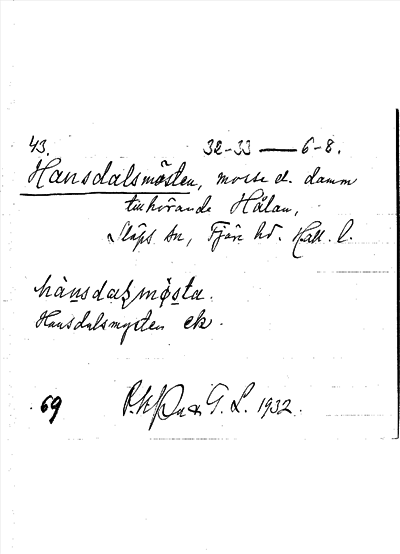 43.
32-33 — 6-8.
Hansdalsmösten, mosse el. damm
tillhörande Hålan,
Släps sn, Fjäre hd. Hall. l.
hànsdaʂmø̀sta.
Hansdalsmysten ek.
69
G. L. 1932.